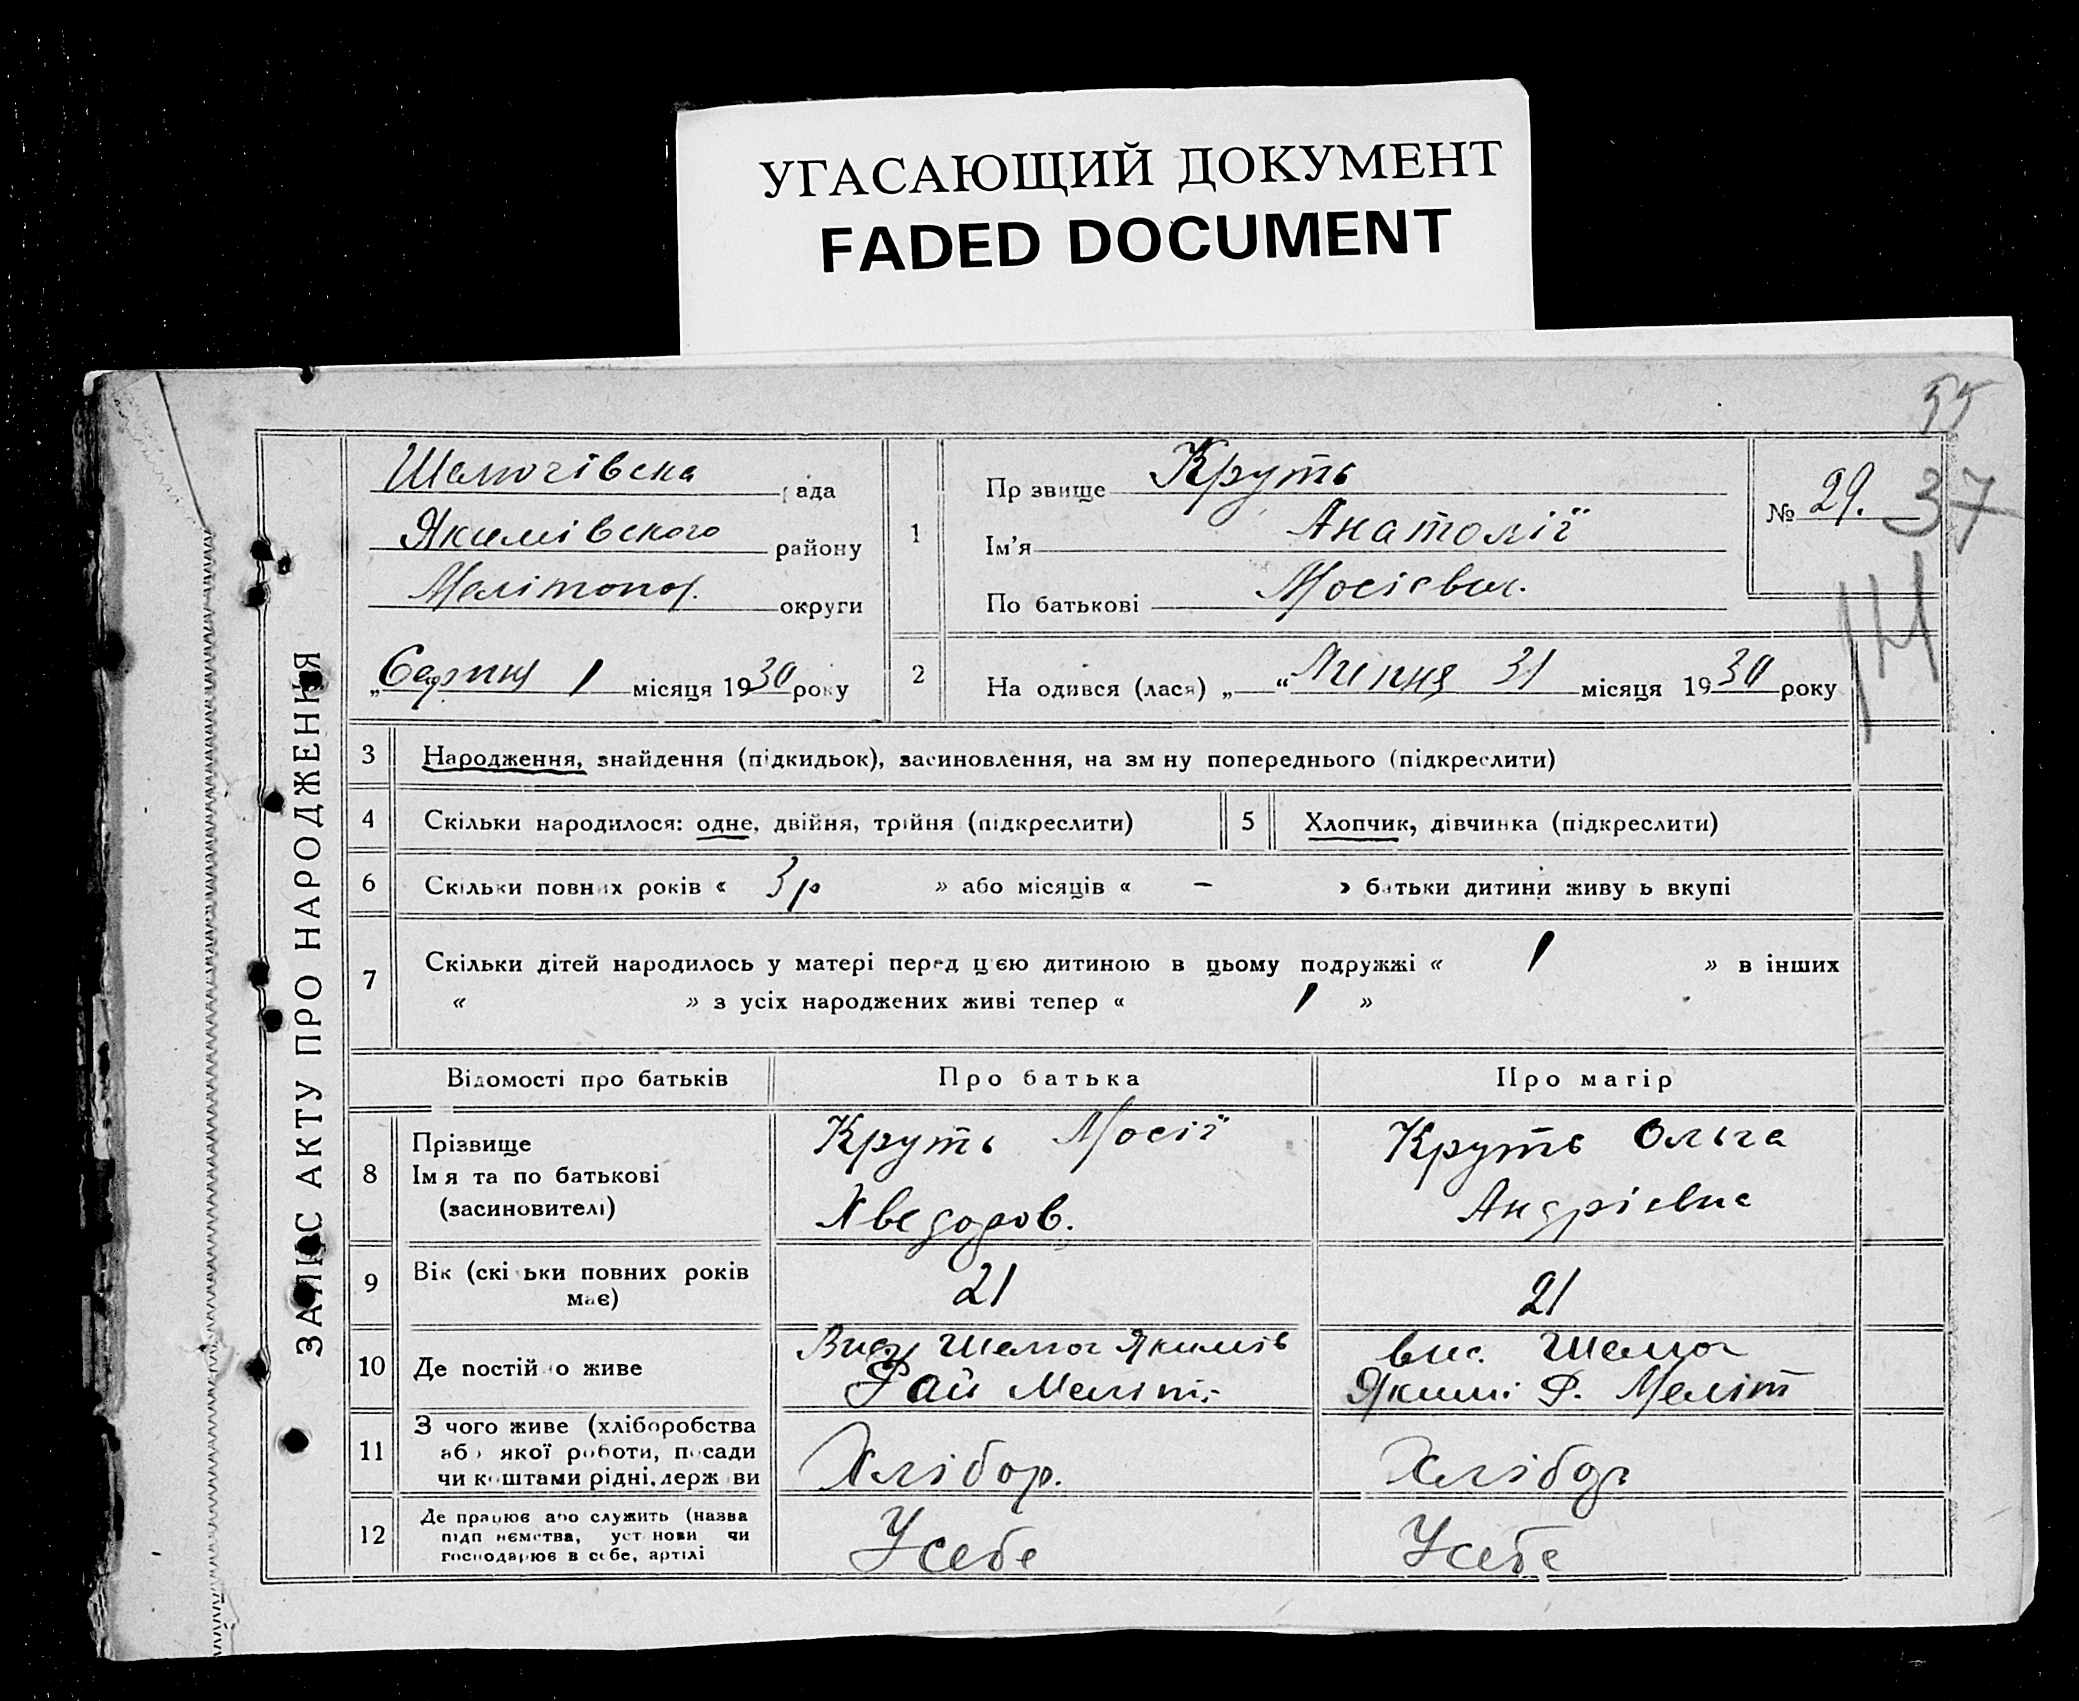 УГАСАЮЩИЙ ДОКУМЕНТ
FADED DOCUMENT
55
37
ЗАПИС АКТУ ПРО НАРОДЖЕННЯ
Шелюгівска рада
Якимівского району
Мелітопол. округи
„Серпня 1 місяця 1930 року
1
Пр звище Круть
Ім'я Анатолії
По батькові Мосієвич.
№ 29.
2
На одився (лася) „ “ Липня 31 місяця 1930 року
3 Народження, знайдення (підкидьок), засиновлення, на зм ну попереднього (підкреслити)
4 Скільки народилося: одне, двійня, трійня (підкреслити) 5 Хлопчик, дівчинка (підкреслити)
6 Скільки повних років « 3р » або місяців « – » батьки дитини живу ь вкупі
7 Скільки дітей народилось у матері перед цією дитиною в цьому подружжі « 1 » в інших
« » з усіх народжених живі тепер « 1 »
Відомості про батьків Про батька Про матір
8 Прізвище
Ім я та по батькові
(засиновителі)
Круть Мосії
Хведоров.
Круть Ольга
Андрієвна
9 Вік (скі ьки повних років
має)
21 21
10 Де постій о живе
Шелюг Якимів
Рай Меліт.
вис. Шелюг
Якимі Р. Меліт
11 З чого живе (хліборобства
або якої роботи, посади
чи коштами рідні, держ ви
Хлібор. Хлібор
12 Де працює або служить (назва
підп иємства, уст нови чи
господарює в себе, артілі
Усебе Усебе